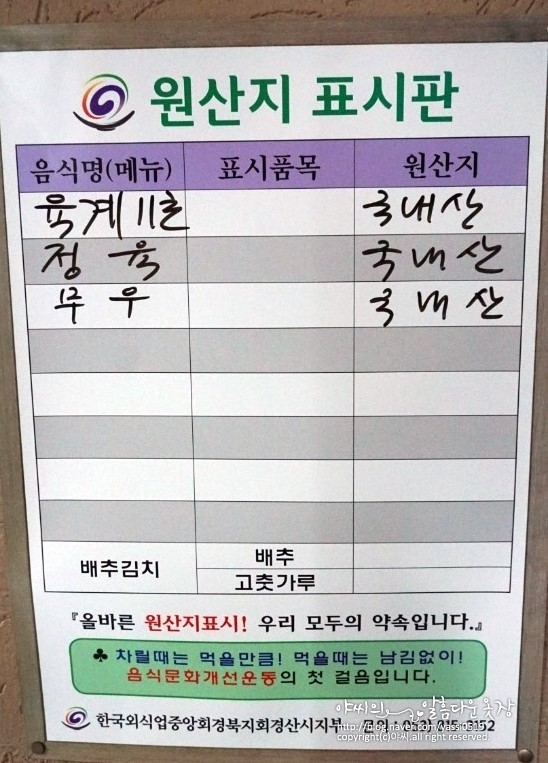 원산지 표시판
음식명(메뉴) 표시품목 원산지
육계11호 국내산
정육 국내산
무우 국내산
배추김치 배추
고춧가루
『올바른 원산지표시! 우리 모두의 약속입니다.』
♣ 차릴때는 먹을만큼! 먹을때는 남김없이!
음식문화개선운동의 첫 걸음입니다.
한국외식업중앙회경북지회경산시지부
야씨의 알흠다운 옷장
http://blog.naver.com/yassi0515
copyright(c)야씨.all right reserved